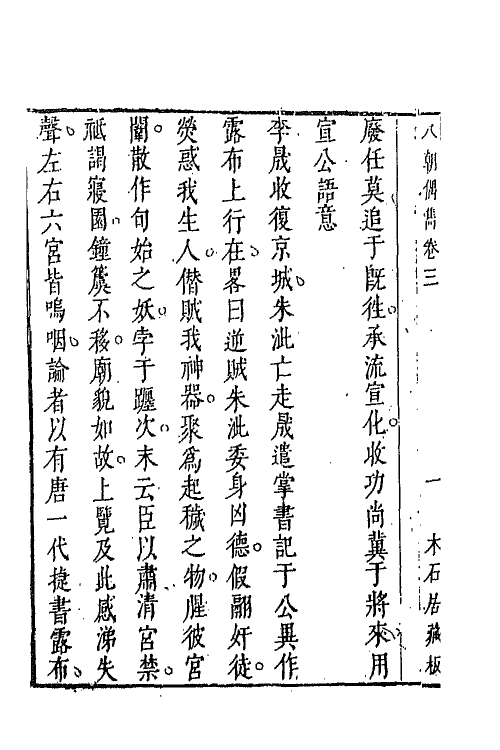 八朝偶雋卷三　一　木石居藏板
廢任莫追于既徃。承流宣化。收功尚冀于將來。用
宣公語意
李晟收復京城。朱泚亡走晟遣掌書記于公異作
露布上行在。畧曰逆賊朱泚委身凶德。假翮奸徒。
熒惑我生人。僣賊我神器。聚為起穢之物。腥彼宮
闈。散作句始之妖。孛于躔次。末云臣以肅清宮禁。
祗謁寢園。鐘簴不移。廟貌如故。上覽及此感涕失
聲。左右六宮皆嗚咽。論者以有唐一代㨗書露布。